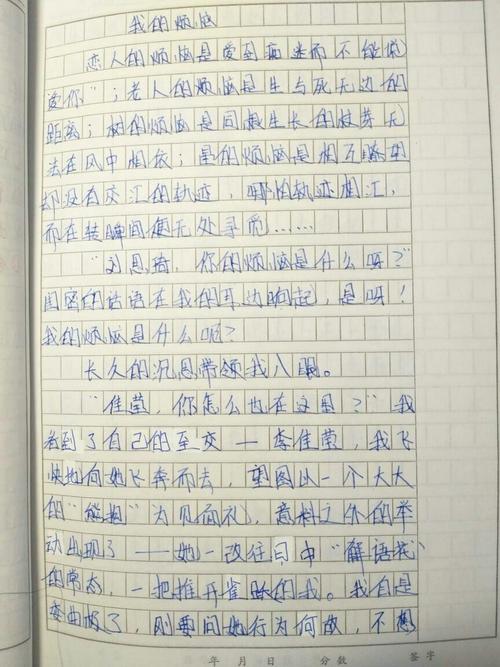 我的烦恼
恋人的烦恼是爱到痴迷而不能说
爱你"；老人的烦恼是生与死无边的
距离；树的烦恼是同根生长的枝芽无
法在风中相依；星的烦恼是相互瞭望
却没有交汇的轨迹，哪怕轨迹相汇，
而在转瞬间便无处寻觅……
"刘思琦，你的烦恼是什么呀？"
闺密的话语在我的耳边响起，是呀！
我的烦恼是什么呢？
长久的沉思带领我入眠。
"佳莹，你怎么也在这里？"我
看到了自己的至交—李佳莹，我飞
快地向她飞奔而去，望图以一个大大
的"熊抱"为见面礼，意料之外的举
动出现了——她一改往日中"解语花"
的常态，一把推开雀跃的我。我自是
委屈极了，刚要问她行为何故，不想
年 月 日 分数 签字